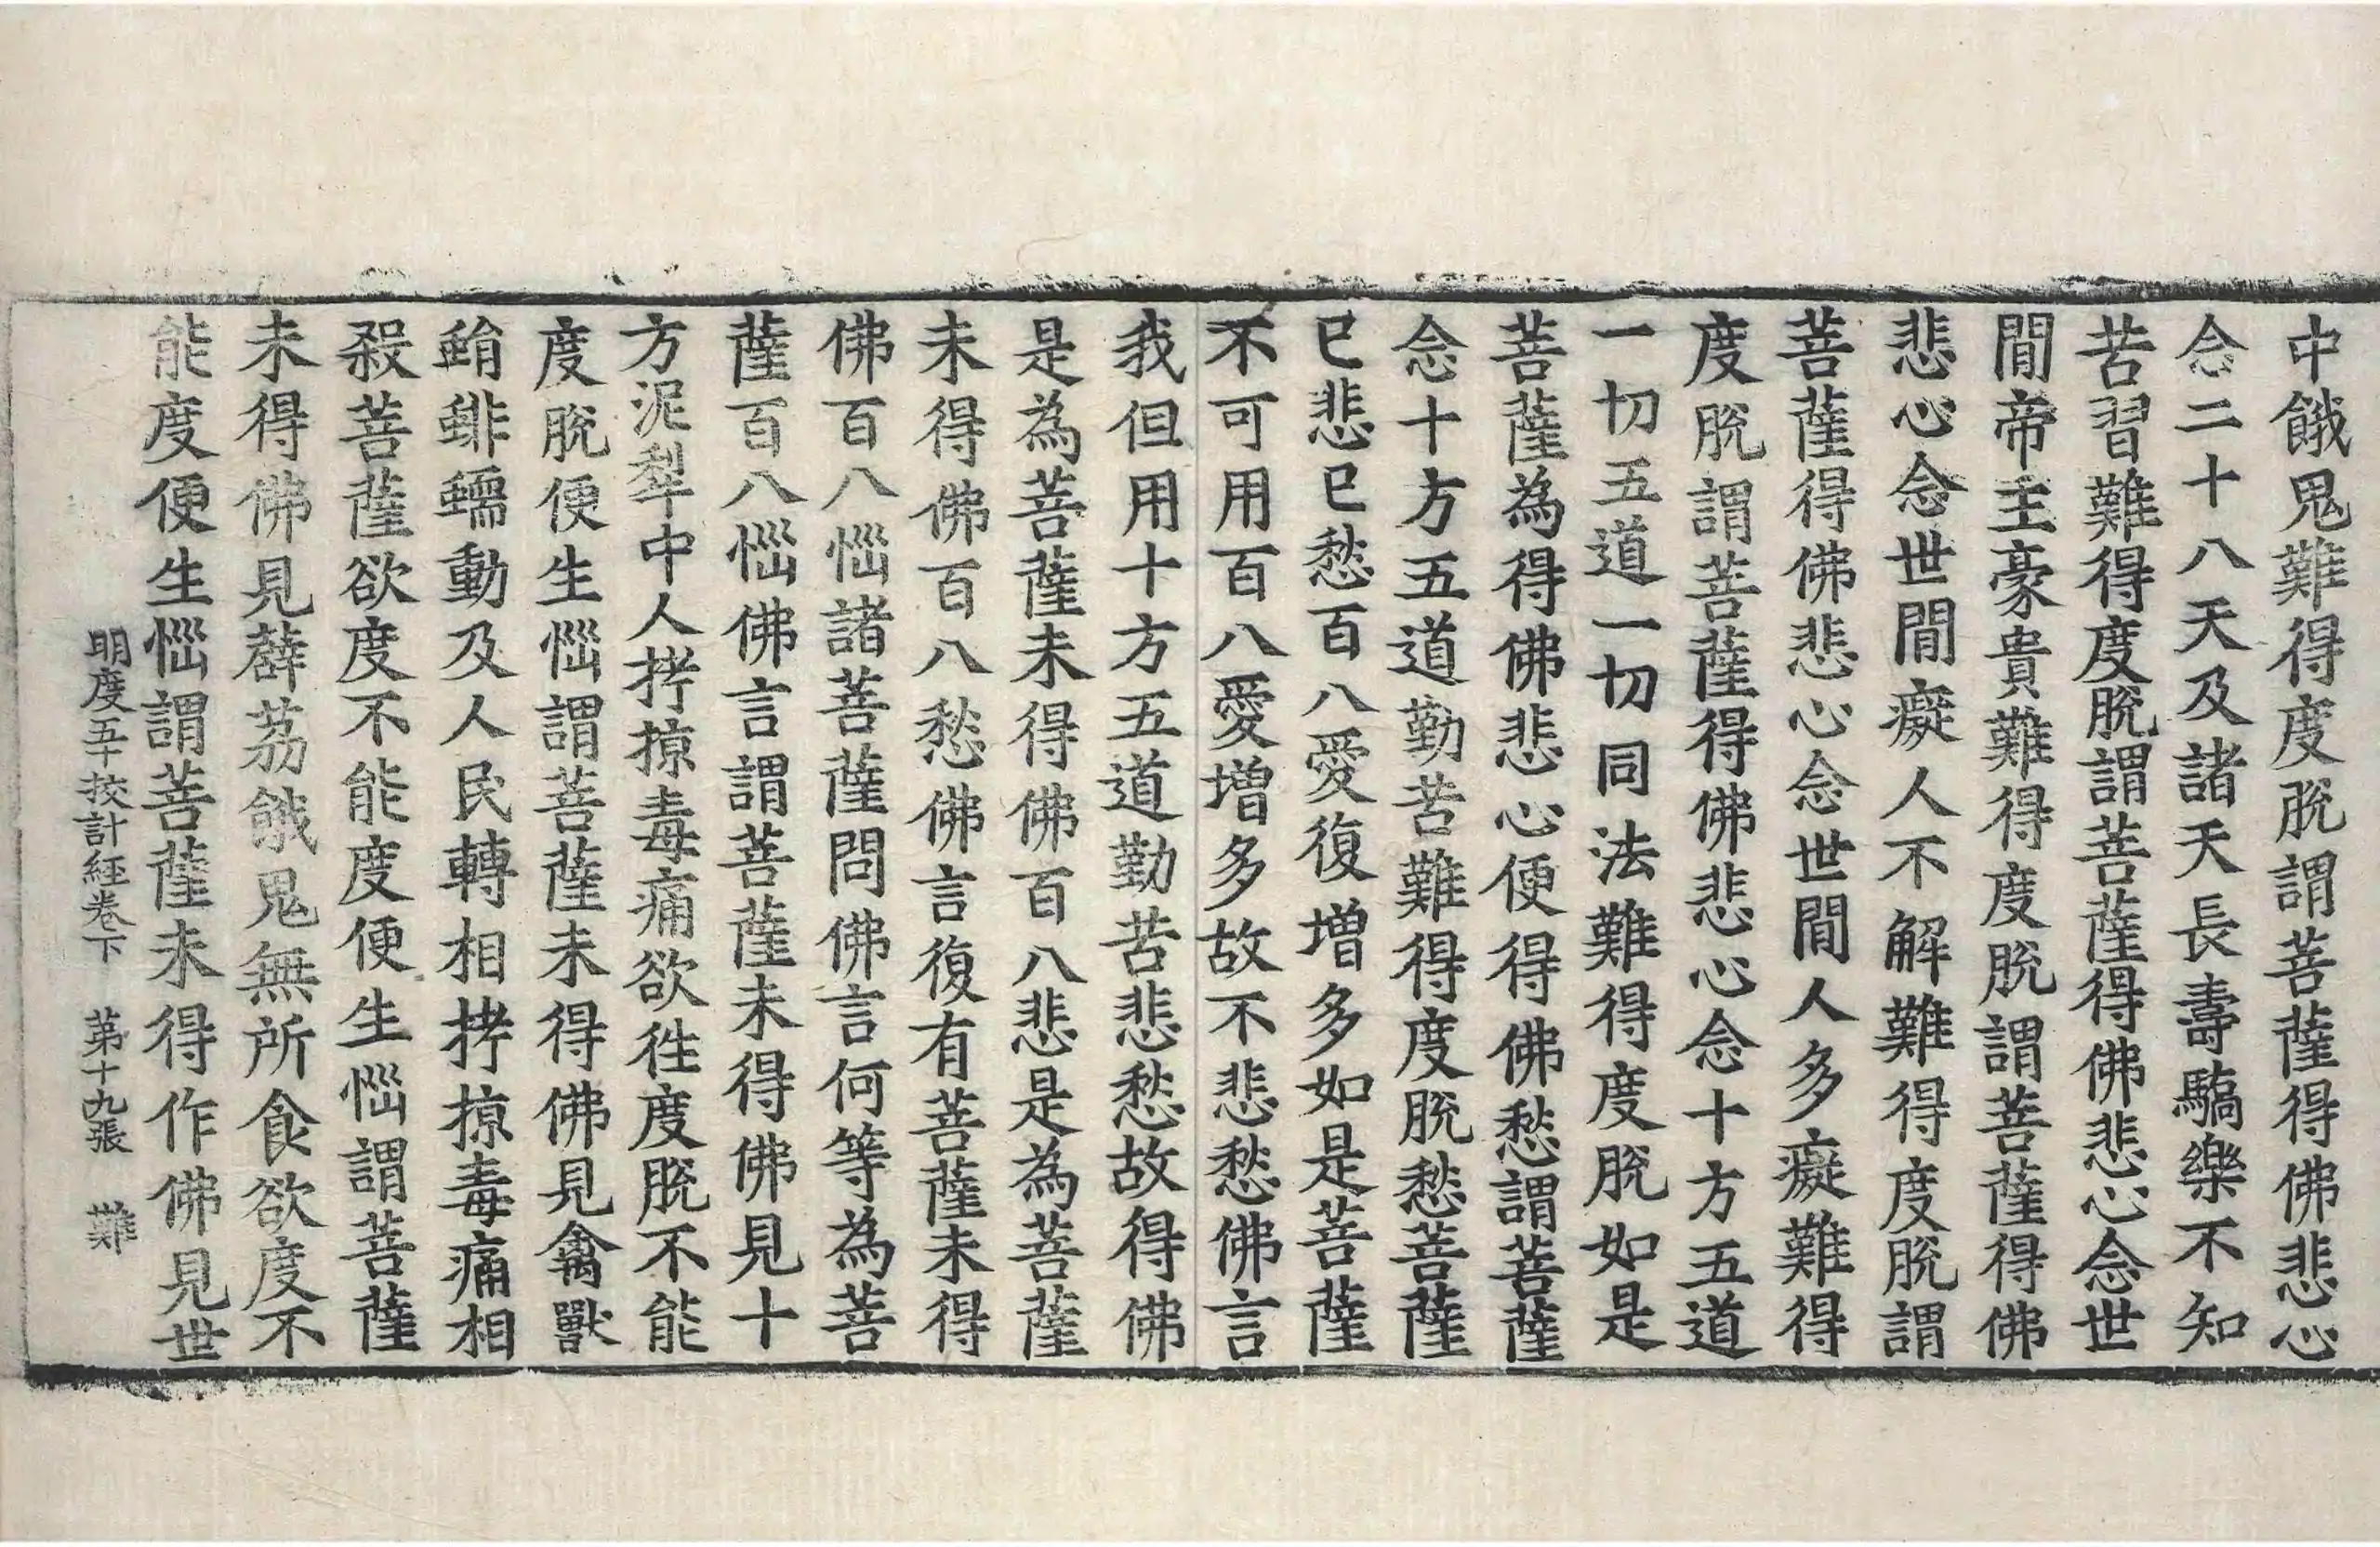 中餓鬼難得度脫謂菩薩得佛悲心
念二十八天及諸天長壽驕樂不知
苦習難得度脫謂菩薩得佛悲心念世
間帝主豪貴難得度脫謂菩薩得佛
悲心念世間癡人不解難得度脫謂
菩薩得佛悲心念世間人多癡難得
度脫謂菩薩得佛悲心念十方五道
一切五道一切同法難得度脫如是
菩薩為得佛悲心便得佛愁謂菩薩
念十方五道勤苦難得度脫愁菩薩
已悲已愁百八愛復增多如是菩薩
不可用百八愛增多故不悲愁佛言
我但用十方五道勤苦悲愁故得佛
是為菩薩未得佛百八悲是為菩薩
未得佛百八愁佛言復有菩薩未得
佛百八惱諸菩薩問佛言何等為菩
薩百八惱佛言謂菩薩未得佛見十
方泥犁中人拷掠毒痛欲往度脫不能
度脫便生惱謂菩薩未得佛見禽獸
蜎蜚蠕動及人民轉相拷掠毒痛相
殺菩薩欲度不能度便生惱謂菩薩
未得佛見薜荔餓鬼無所食欲度不
能度便生惱謂菩薩未得作佛見世
明度五十挍計經卷下 第十九張 難